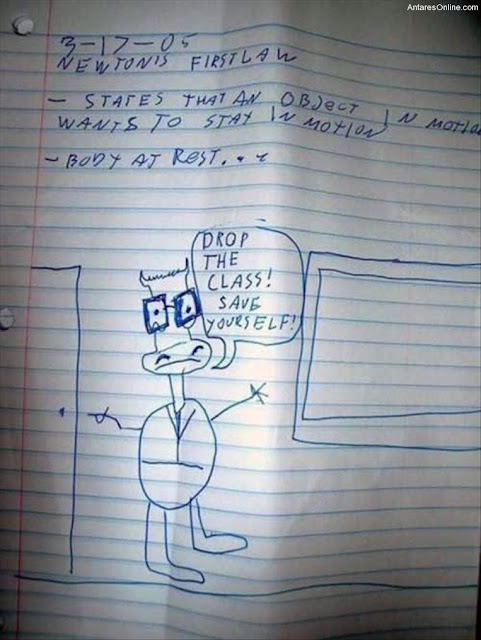 AntaresOnline.com
3-17-05
NEWTON'S FIRST LAW
- STATES THAT AN OBJECT IN MOTION
WANTS TO STAY IN MOTION
- BODY AT REST...
DROP
THE
CLASS!
SAVE
YOURSELF!